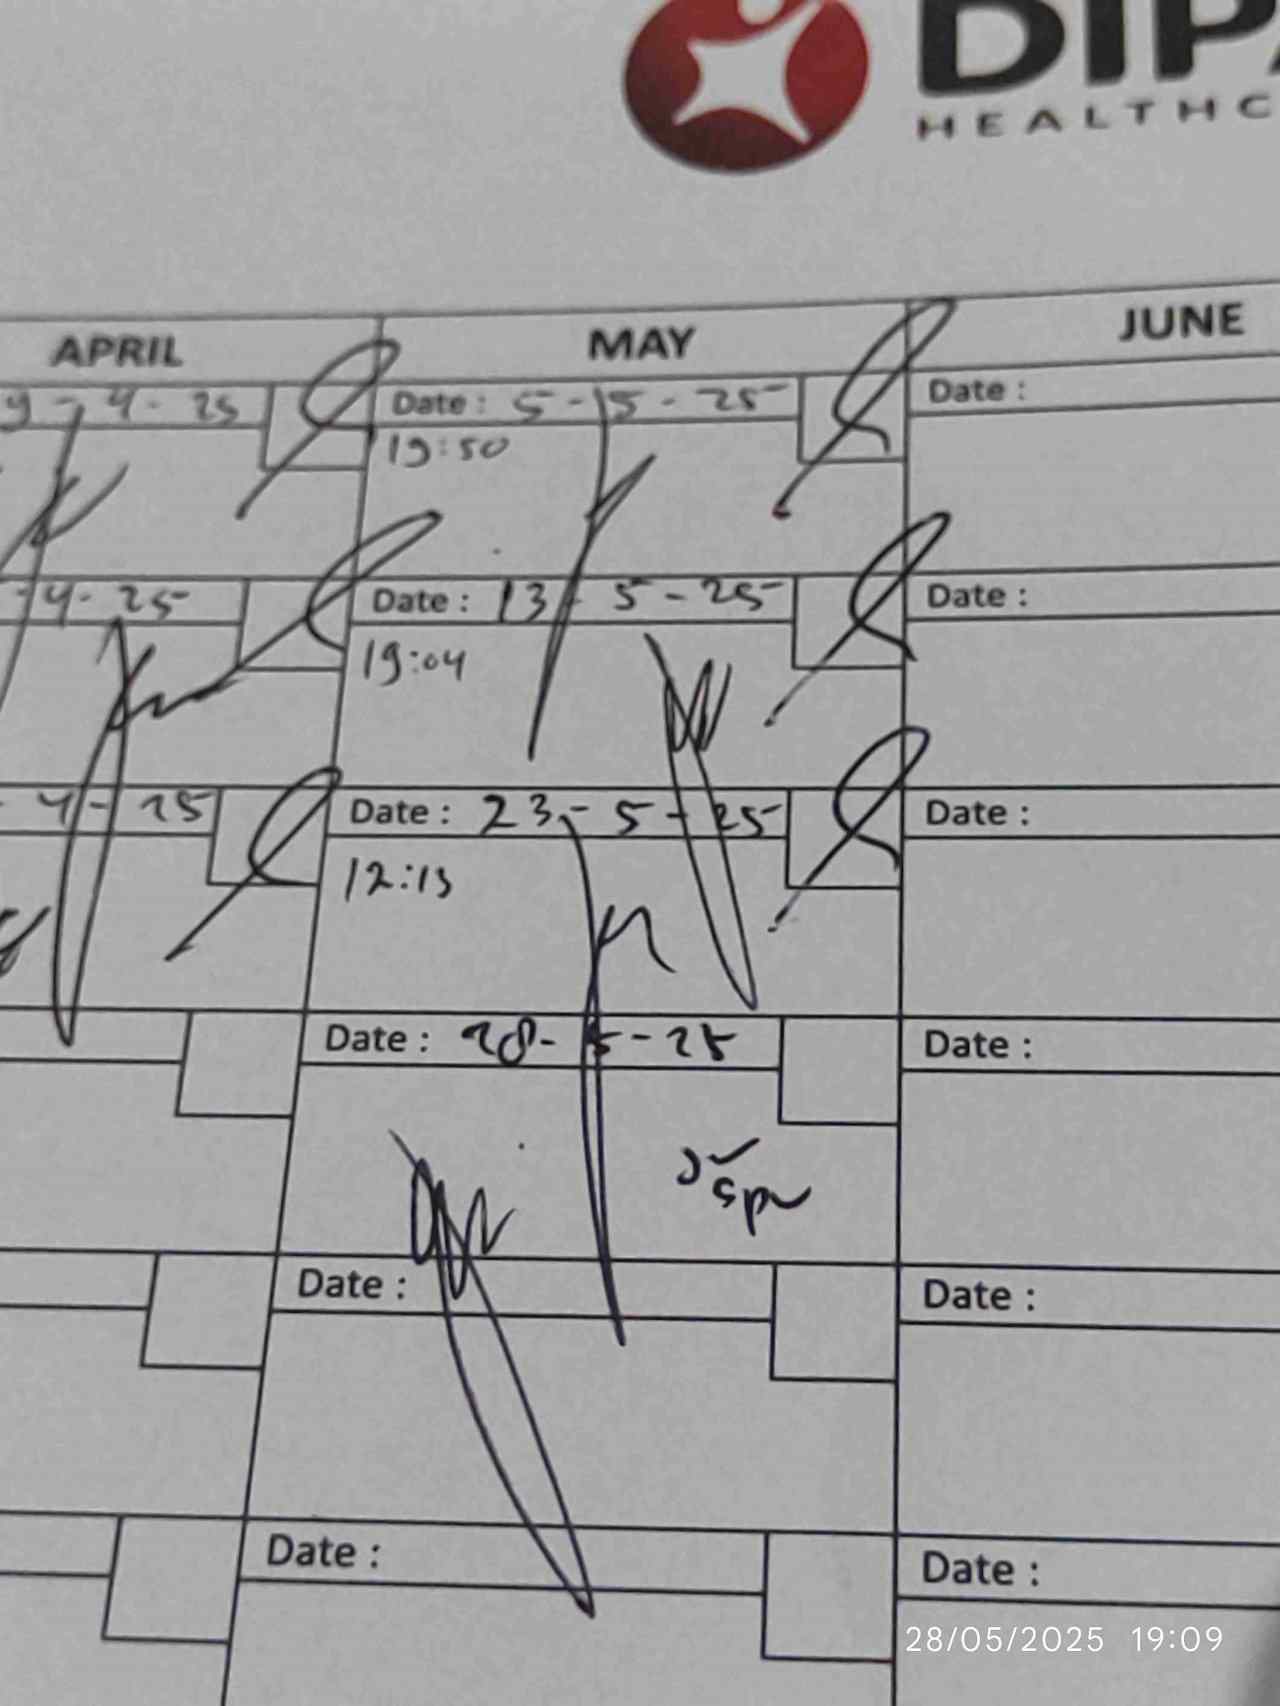 DIP
HEALTHC
APRIL
MAY
JUNE
9-4-25
Date : 5-5-25
Date :
19:50
4-25
Date : 13-5-25
Date :
19:04
4-25
Date : 23-5-25
Date :
12:13
Date : 28-5-25
Date :
Date :
Date :
Date :
Date :
28/05/2025 19:09